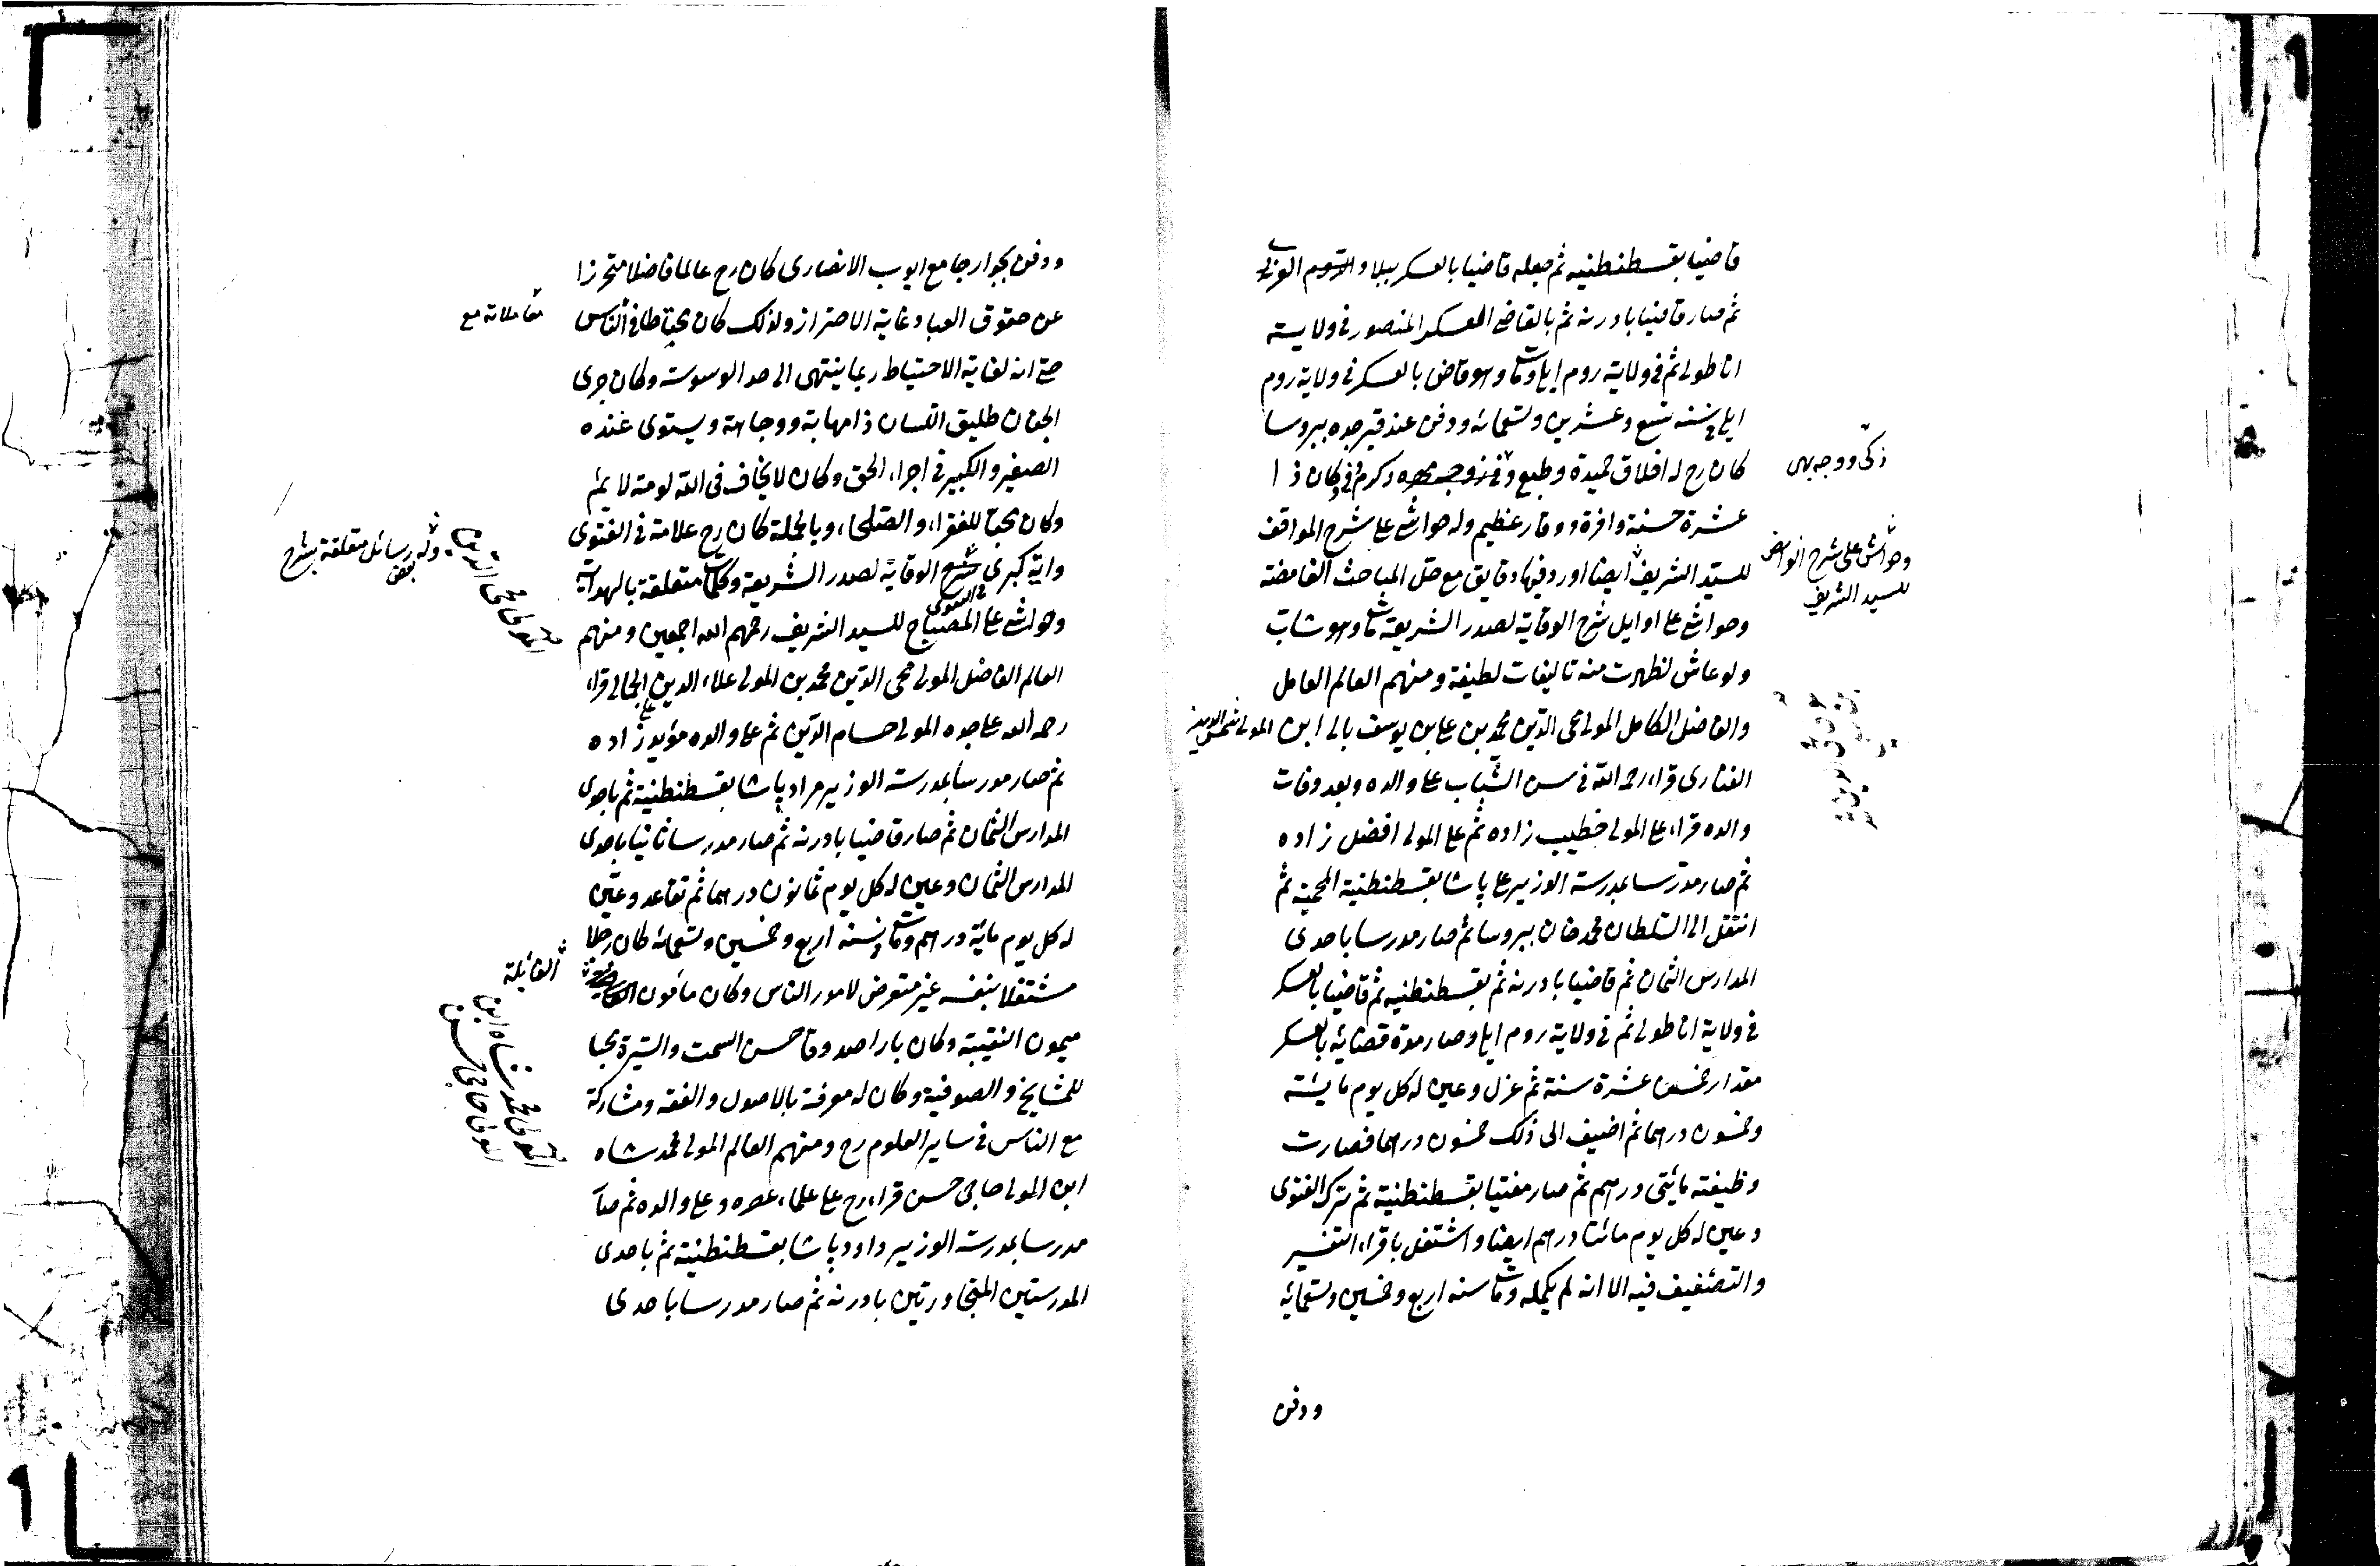 قاضيا بقسطنطنيه ثم جعله قاضيا بالعسكر ببلاد الروم
ثم صار قاضيا بادرنه ثم بالقاضى المعسكر المنصور فى ولاية
اناطولى ثم فى ولاية روم ايلى ومات وهو قاض بالعسكر فى ولاية روم
ايلى فى سنه تسع وعشرين وتسعمائه ودفن عند قبر جده ببروسا
كان رح له اخلاق حميدة وطبع وكرم وفى وكان ذا
ذكى ووجه بهى
عشرة حسنة وافرة ووقار عظيم وله حواش على شرح المواقف
للسيد الشريف ايضا اورد فيها دقايق مع حل المباحث الغامضة
وحواش على شرح الفرائض
للسيد الشريف
وحواش على اوايل شرح الوقاية لصدر الشريعة مات وهو شاب
ولو عاش لظهرت منه تاليفات لطيفة ومنهم العالم العامل
والفاضل الكامل المولى محى الدين محمد بن على بن يوسف بالى ابن المولى شمس الدين
الفنارى قراء رحمه الله فى سن الشباب على والده وبعد وفات
والده قراء على المولى خطيب زاده ثم على المولى افضل زاده
ثم صار مدرسا بمدرسة الوزير على پاشا بقسطنطنية المحمية ثم
انتقل الى السلطان محمد خان ببروسا ثم صار مدرسا باحدى
المدارس الثمان ثم قاضيا بادرنه ثم بقسطنطنيه ثم قاضيا بالعسكر
فى ولاية اناطولى ثم فى ولاية روم ايلى وصار مدة قضائه بالعسكر
مقدار خمس عشرة سنة ثم عزل وعين له كل يوم مايئة
وخمسون درهما ثم اضيف الى ذلك خمسون درهما فصارت
وظيفته مائتى درهم ثم صار مفتيا بقسطنطنية ثم ترك الفتوى
وعين له كل يوم مائتا درهم ايضا واشتغل باقراء التفسير
والتصنيف فيه الا انه لم يكمله ومات سنه اربع وخمسين وتسعمائه
ودفن
ودفن بجوار جامع ايوب الانصارى كان رح عالما فاضلا متحرزا
عن حقوق العباد غاية الاحتراز ولذلك كان يحتاط فى الناس
معاملاته مع
حتى انه لغاية الاحتياط ربما ينتهى الى حد الوسوسة وكان جرى
الجنان طليق اللسان ذا مهابة ووجاهة ويستوى عنده
الصغير والكبير فى اجراء الحق وكان لا يخاف فى الله لومة لايم
وكان محبا للفقراء والصلحاء وبالجملة كان رح علامة فى الفتوى
واية كبرى فى التقوى شرح الوقاية لصدر الشريعة وكلمات متعلقة بالهداية
وله رسائل متعلقة بشرح
بعض
المولى محى الدين
وحواش على المصباح للسيد الشريف رحمهم الله اجمعين ومنهم
العالم الفاضل المولى محى الدين محمد بن المولى علاء الدين الجمالى قراء
رحمه الله على جده المولى حسام الدين ثم على والده على مؤيد زاده
ثم صار مدرسا بمدرسة الوزير مراد پاشا بقسطنطنية ثم باحدى
المدارس الثمان ثم صار قاضيا بادرنه ثم صار مدرسا ثانيا باحدى
المدارس الثمان وعين له كل يوم ثمانون درهما ثم تقاعد وعين
له كل يوم مائة درهم ومات فى سنه اربع وخمسين وتسعمائه كان رجلا
مشتغلا بنفسه غير متعرض لامور الناس وكان مأمون
الغائلة
ميمون النقيبة وكان بارا صدوقا حسن السمت والسيرة محبا
للمشايخ والصوفية وكان له معرفة بالاصول والفقه ومشاركة
مع الناس فى ساير العلوم رح ومنهم العالم المولى محمد شاه
المولى محمد شاه ابن
المولى حاجى حسن
ابن المولى حاجى حسن قراء رح على علماء عصره وعلى والده ثم صار
مدرسا بمدرسة الوزير داود پاشا بقسطنطنية ثم باحدى
المدرستين المتجاورتين بادرنه ثم صار مدرسا باحدى